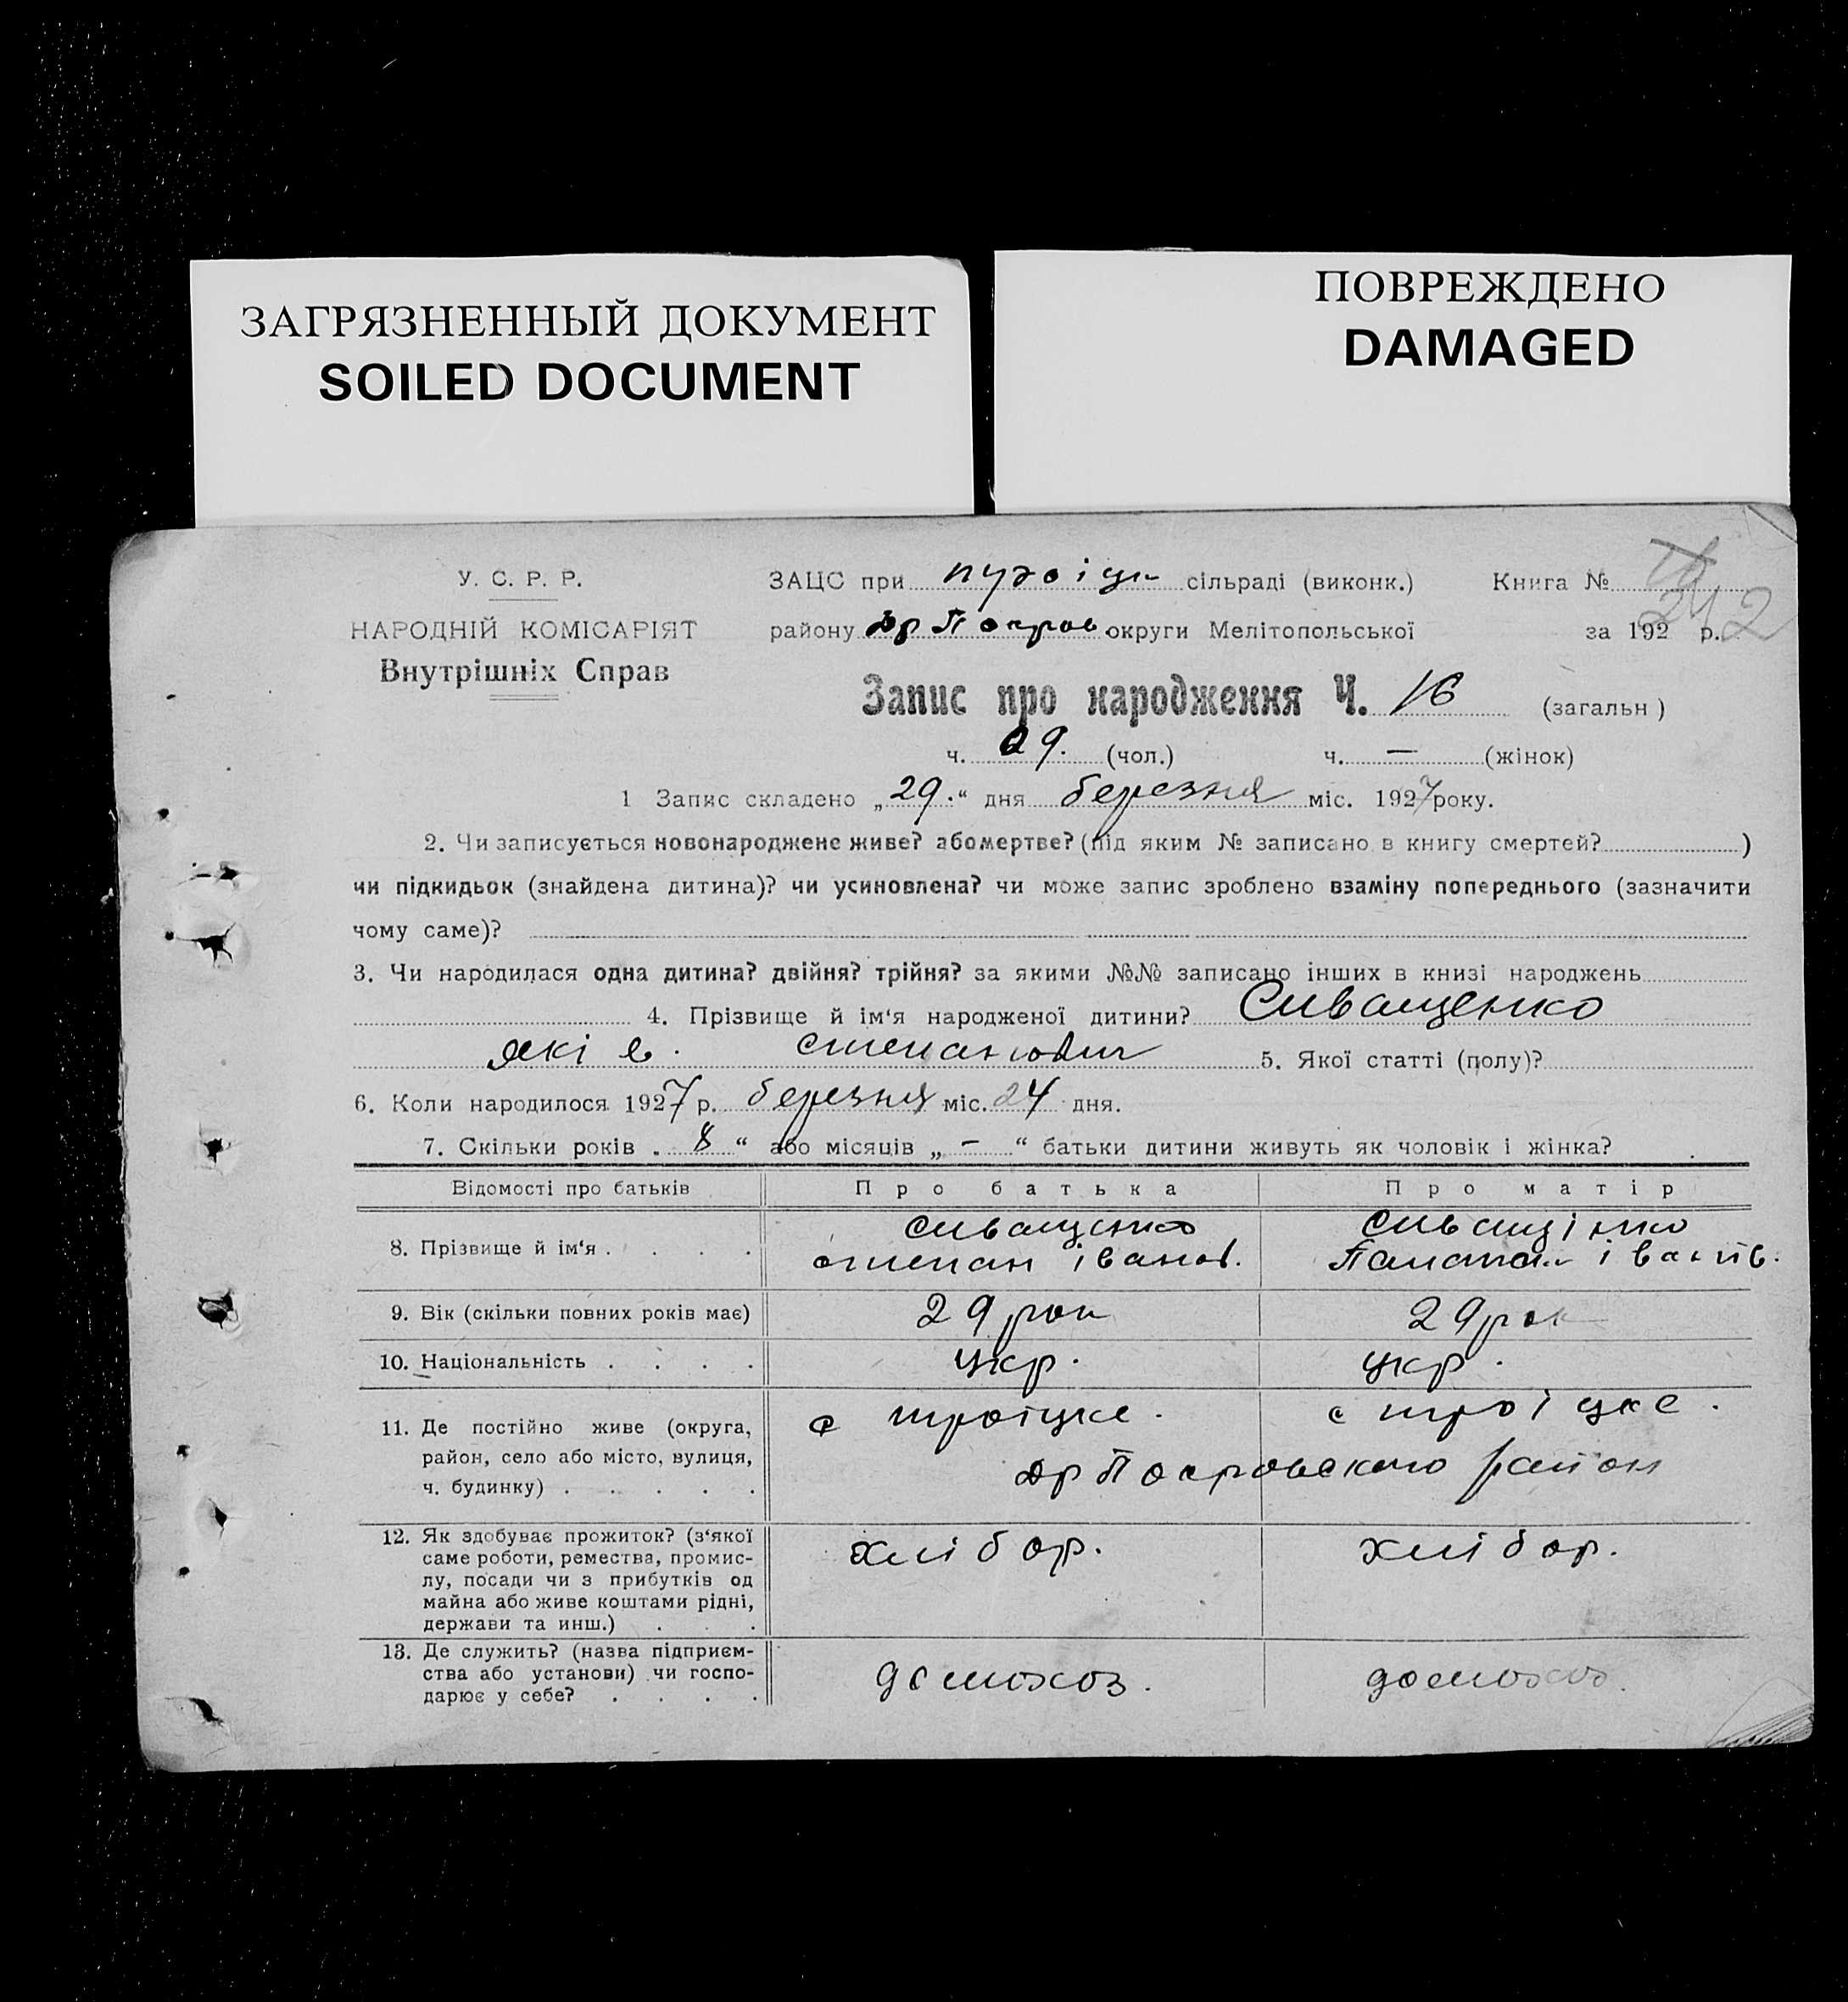 ЗАГРЯЗНЕННЫЙ ДОКУМЕНТ
SOILED DOCUMENT
ПОВРЕЖДЕНО
DAMAGED
У. С. Р. Р.
НАРОДНІЙ КОМІСАРІЯТ
Внутрішніх Справ
ЗАЦС при сільраді (виконк.) Книга №
району округи Мелітопольської за 192 р.
Запис про народження Ч. 16 (загальн)
ч. 09. (чол.) ч. — (жінок)
1 Запис складено „29.“ дня березня міс. 1927 року.
2. Чи записується новонароджене живе? або мертве? (під яким № записано в книгу смертей? )
чи підкидьок (знайдена дитина)? чи усиновлена? чи може запис зроблено взаміну попереднього (зазначити
чому саме)?
3. Чи народилася одна дитина? двійня? трійня? за якими №№ записано інших в книзі народжень
4. Прізвище й ім‘я народженої дитини? Сиващенко
степанович 5. Якої статті (полу)?
6. Коли народилося 1927 р. березня міс. 24 дня.
7. Скільки років „ 8 “ або місяців „ – “ батьки дитини живуть як чоловік і жінка?
Відомості про батьків Про батька Про матір
8. Прізвище й ім‘я . . . . сиващенко сиващінко
степан іванов.
9. Вік (скільки повних років має) 29 рок 29 рок
10. Національність . . . . укр. укр.
11. Де постійно живе (округа, район, село або місто, вулиця, ч. будинку) . . . . . с троіцке. с троіцке.
район
12. Як здобуває прожиток? (з‘якої саме роботи, ремества, промислу, посади чи з прибутків од майна або живе коштами рідні, держави та инш.) . . . хлібор. хлібор.
13. Де служить? (назва підприємства або установи) чи господарює у себе? . . . . домохоз. домохоз.